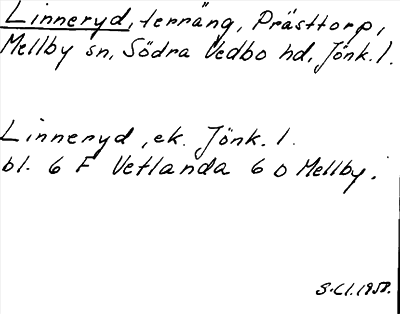 Linneryd, terräng, Prästtorp,
Mellby sn, Södra Vedbo hd, Jönk. l.
Linneryd, ek. Jönk. l.
bl. 6 F Vetlanda 6 o Mellby.
S.Cl. 1958.